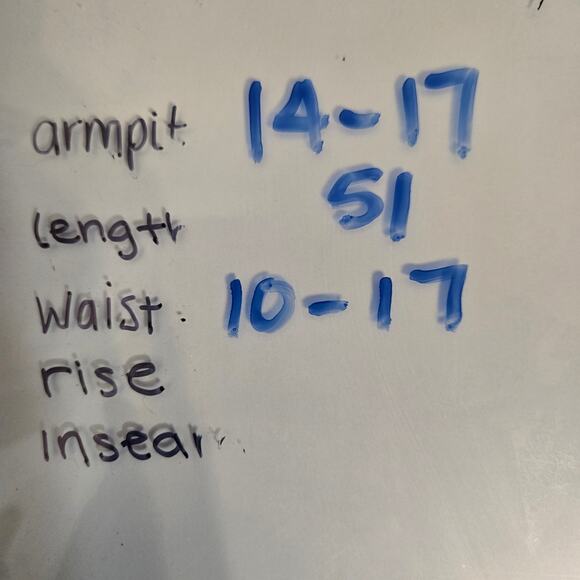 armpit 14-17
length 51
waist 10-17
rise
insear